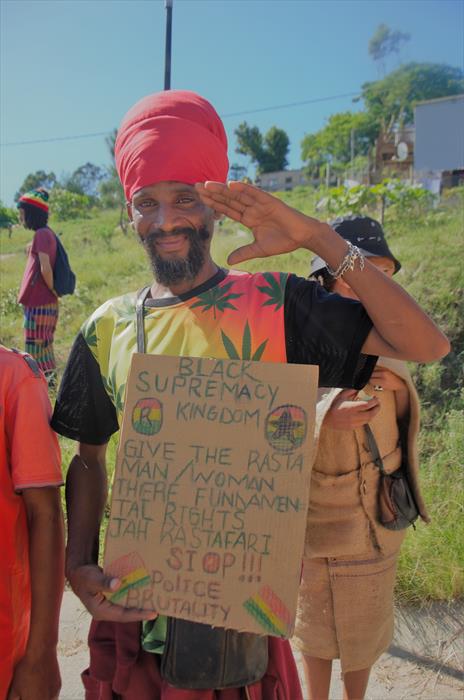 BLACK
SUPREMACY
KINGDOM
R
GIVE THE RASTA
MAN/WOMAN
THERE FUNDAMEN
TAL RIGHTS
JAH RASTAFARI
STOP!!!
POLICE
BRUTALITY